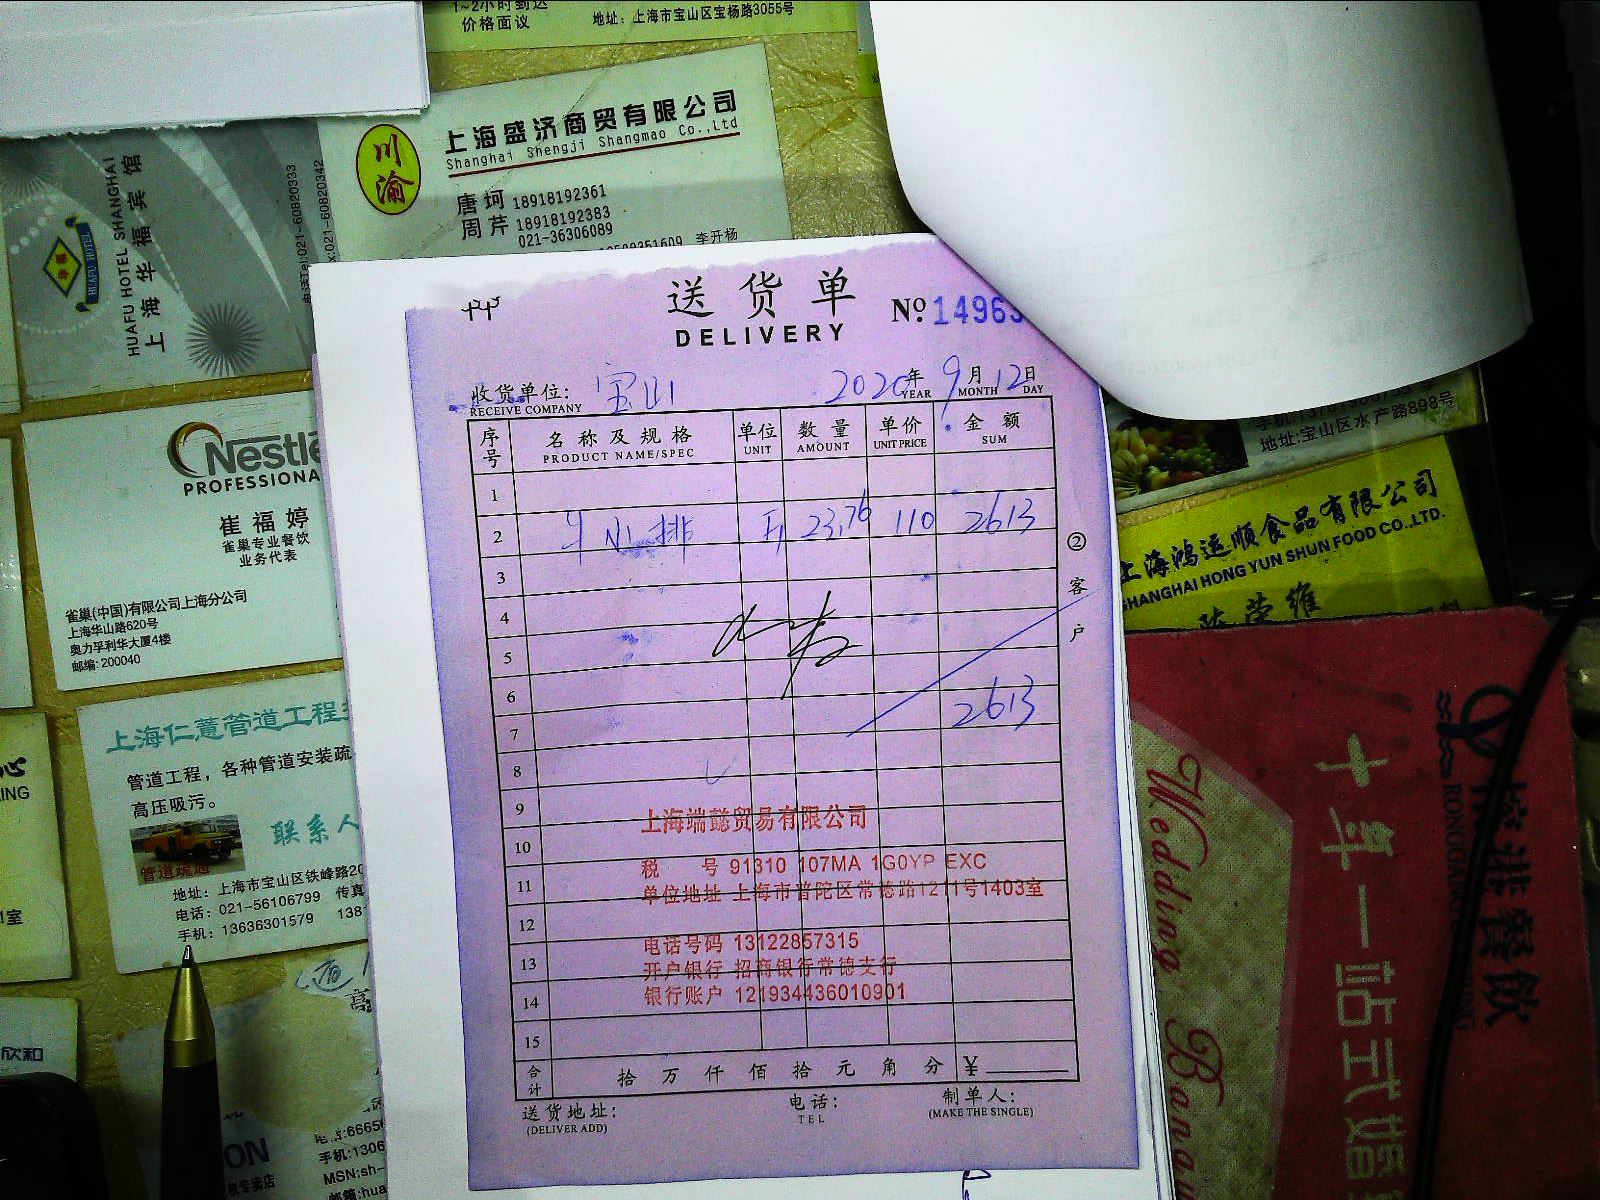 1~2小时到达
价格面议
地址：上海市宝山区宝杨路3055号
上海盛济商贸有限公司
Shanghai Shengji Shangmao Co.,Ltd
川渝
唐珂 18918192361
周芹 18918192383
021-36306089
李开杨
HUAFU HOTEL SHANGHAI
上海华福宾馆
HUAFU HOTEL
Tel:021-60820333
021-60820342
Nestlé
PROFESSIONA
崔福婷
雀巢专业餐饮
业务代表
雀巢(中国)有限公司上海分公司
上海华山路620号
奥力孚利华大厦4楼
邮编: 200040
上海仁薏管道工程
管道工程，各种管道安装疏
高压吸污。
联系人
管道疏通
地址：上海市宝山区铁峰路20
电话：021-56106799 传真
手机：13636301579 138
送货单
DELIVERY
No 14963
收货单位： 宝山
RECEIVE COMPANY
2020年 9月 12日
YEAR MONTH DAY
序号 名称及规格 单位 数量 单价 金额
PRODUCT NAME/SPEC UNIT AMOUNT UNIT PRICE SUM
1
2 牛小排 斤 23.76 110 2613
3
4
5
6
7 2613
8
9
10
11
12
13
14
15
②客户
上海端懿贸易有限公司
税 号 91310 107MA 1G0YP EXC
单位地址 上海市普陀区常德路1211号1403室
电话号码 13122857315
开户银行 招商银行常德支行
银行账户 121934436010901
合计 拾 万 仟 佰 拾 元 角 分 ¥
送货地址： 电话： 制单人：
(DELIVER ADD) TEL (MAKE THE SINGLE)
地址:宝山区水产路898号
上海鸿运顺食品有限公司
SHANGHAI HONG YUN SHUN FOOD CO.,LTD.
陈荣维
Wedding Bana
十年一站式婚
港餐饮
欣和
手机:1306
MSN:sh-
邮箱:hua